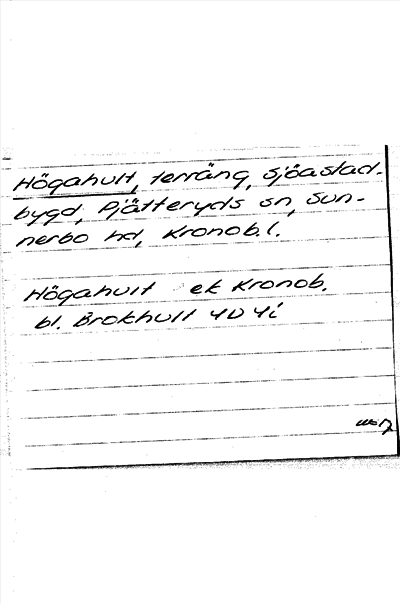 Högahult, terräng, Sjöastad-
bygd, Pjätteryds sn, Sun-
nerbo hd, Kronob.l.
Högahult ek Kronob.
bl. Brokhult 4D 4i